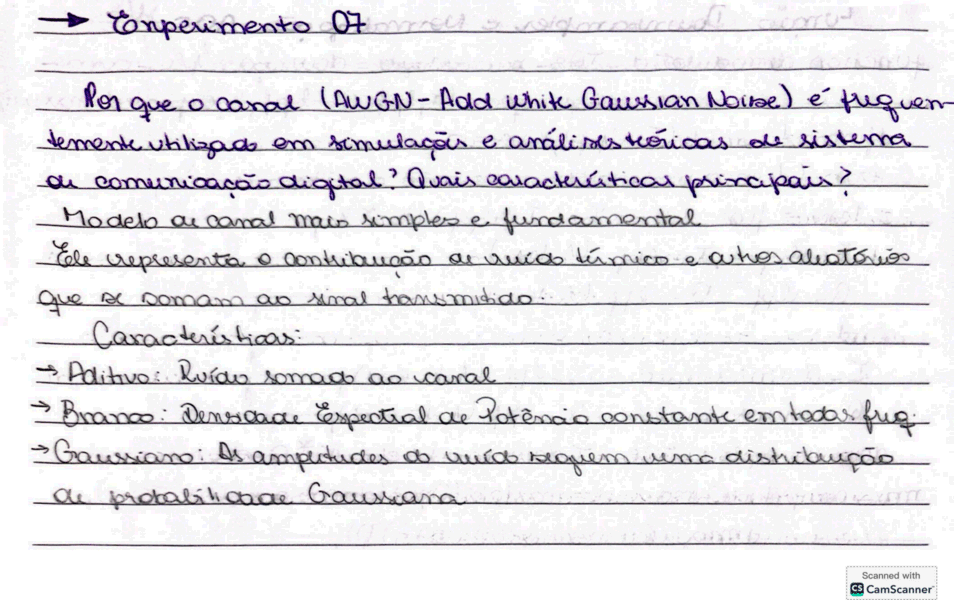 → Experimento 07
Por que o canal (AWGN - Add White Gaussian Noise) é frequen-
temente utilizado em simulações e análises teóricas de sistema
de comunicação digital? Quais características principais?
Modelo de canal mais simples e fundamental
Ele representa a contribuição de ruído térmico e outros aleatórios
que se somam ao sinal transmitido.
Características:
→ Aditivo: Ruído somado ao canal
→ Branco: Densidade Espectral de Potência constante em todas freq.
→ Gaussiano: As amplitudes do ruído seguem uma distribuição
de probabilidade Gaussiana
Scanned with
CS CamScanner